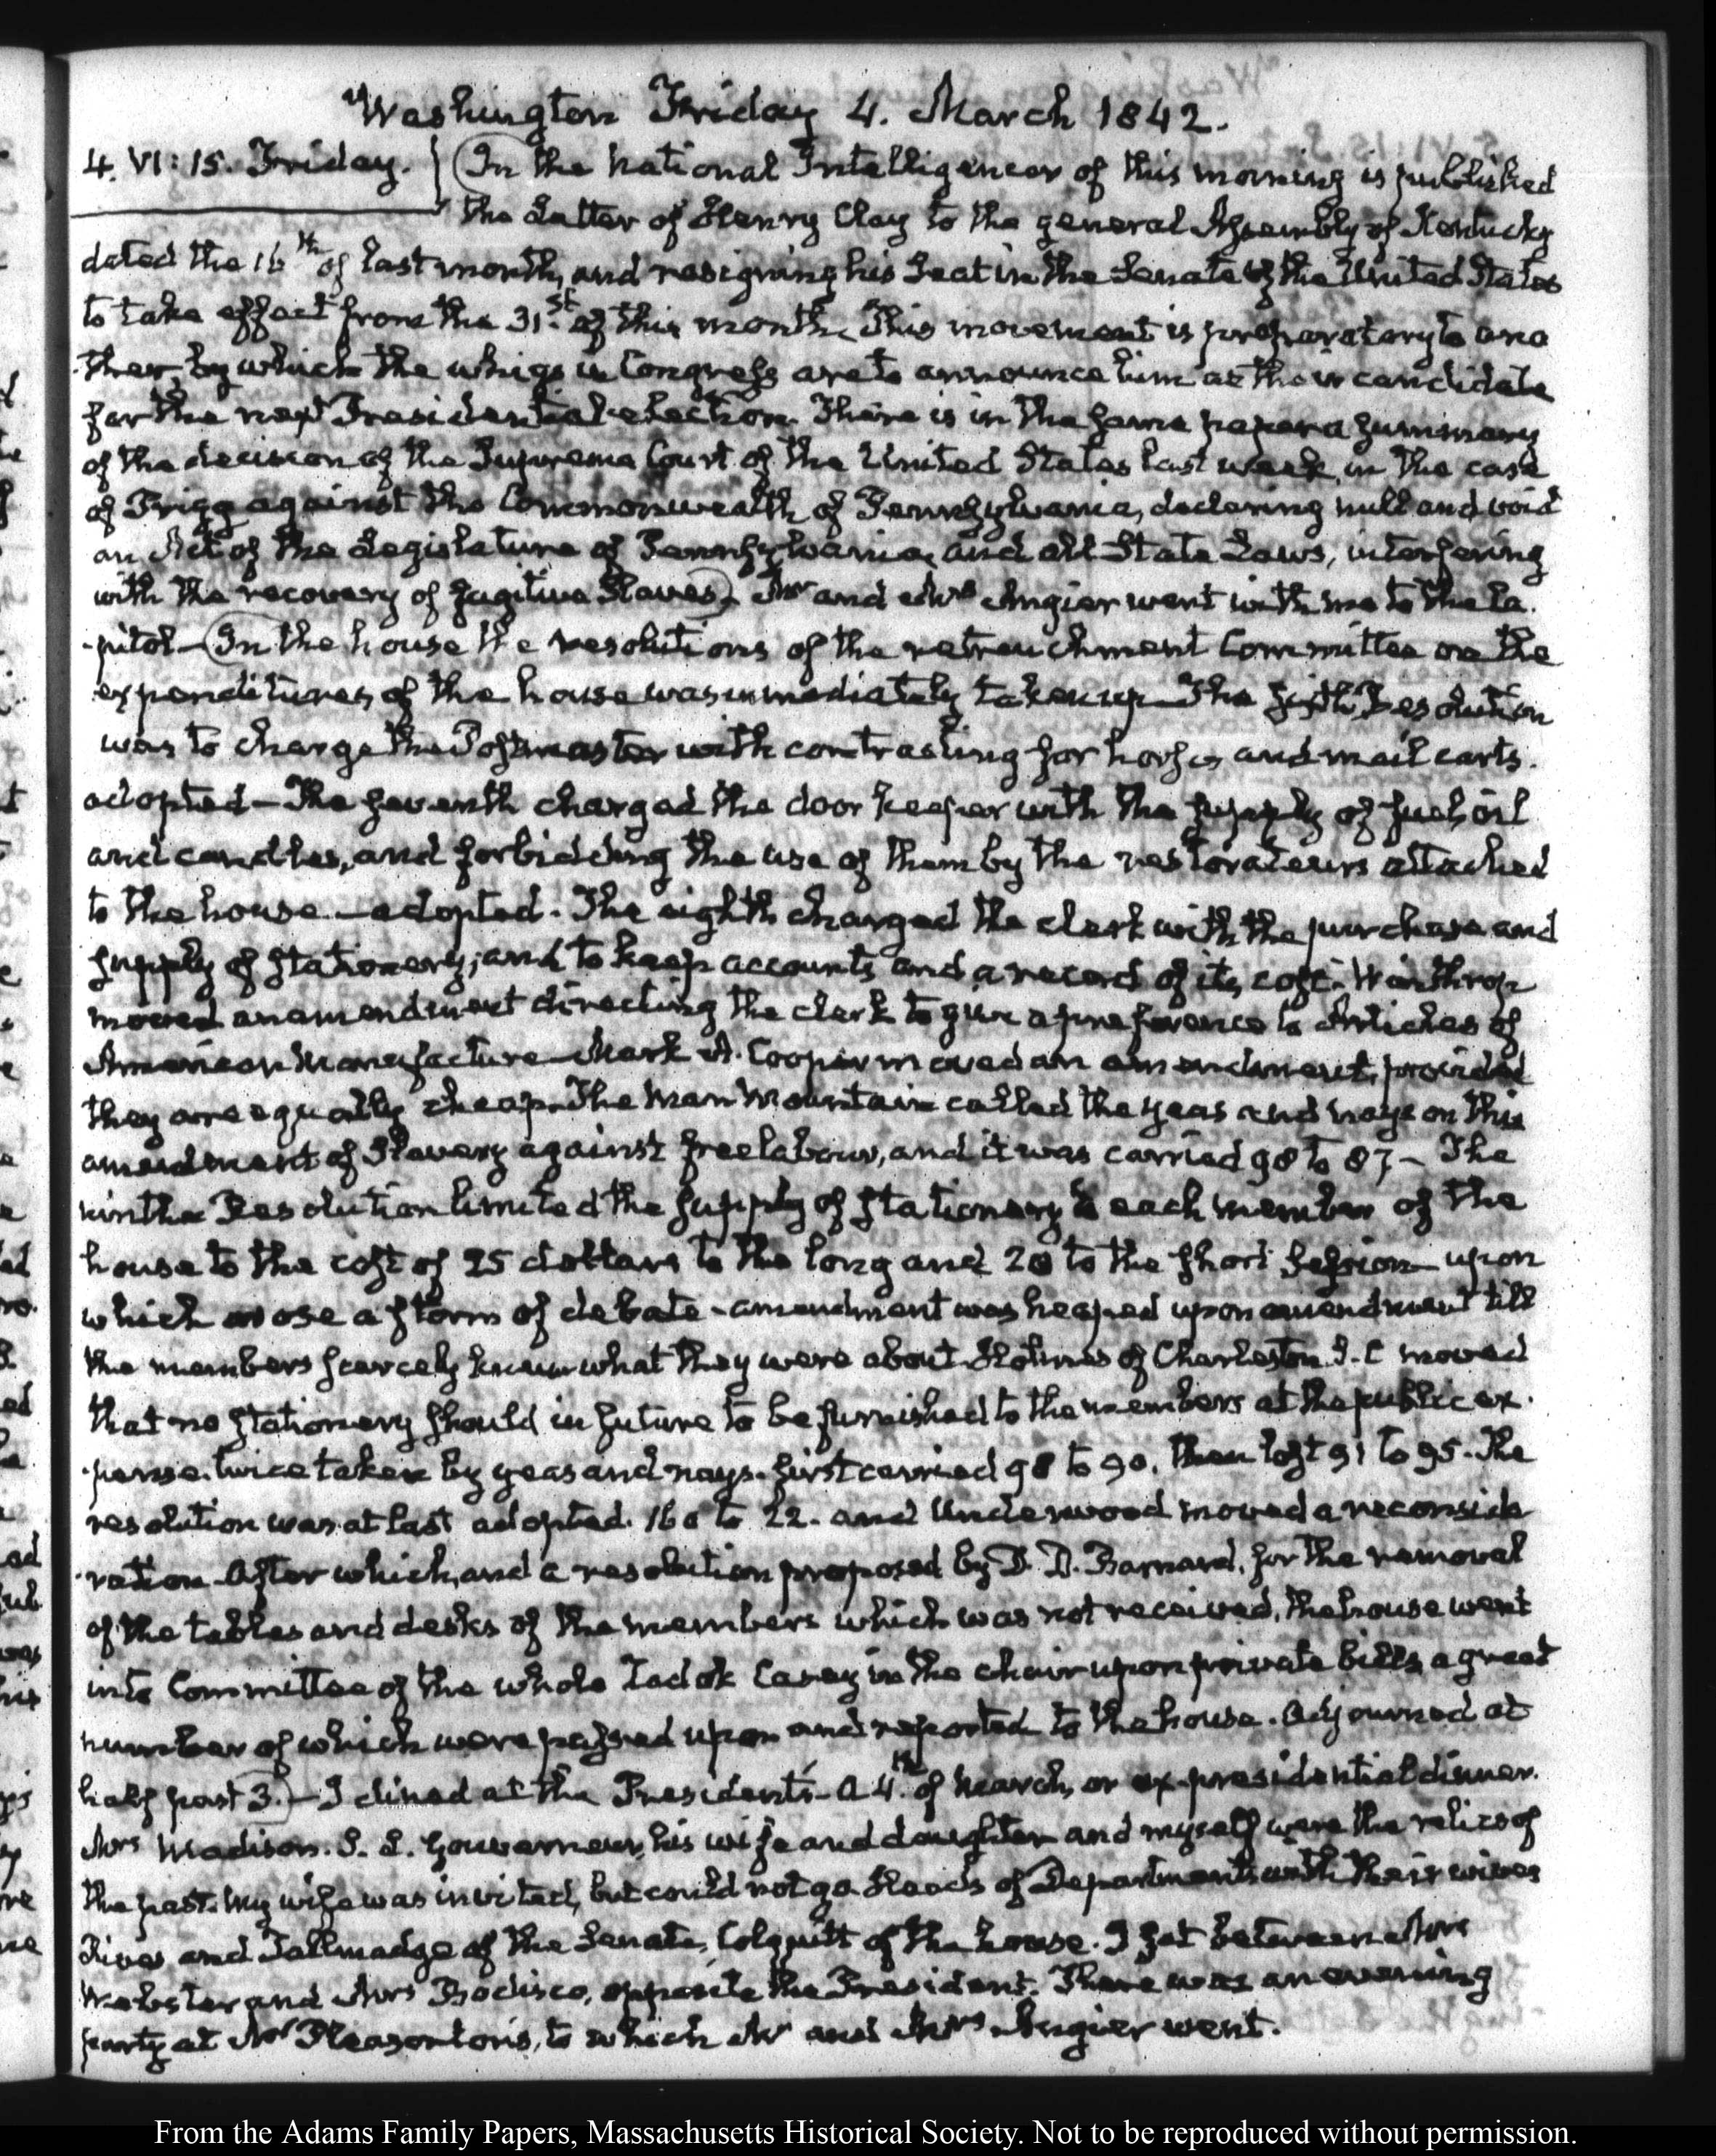 Washington Friday 4. March 1842.
4. VI: 15. Friday. In the National Intelligencer of this morning is published
the Letter of Henry Clay to the general Assembly of Kentucky
dated the 16th of last month, and resigning his Seat in the Senate of the United States
to take effect from the 31st. of this month. This movement is preparatory to ano
-ther, by which the whigs in Congress are to announce him as their candidate
for the next Presidential election. There is in the same paper a summary
of the decision of the Supreme Court of the United States last week, in the case
of Prigg against the Commonwealth of Pennsylvania, declaring null and void
an Act of the Legislature of Pennsylvania, and all State Laws, interfering
with the recovery of fugitive Slaves. Mr and Mrs Angier went with me to the Ca-
-pitol—In the house the resolutions of the retrenchment Committee on the
expenditures of the house was immediately taken up—The sixth Resolution
was to charge the Postmaster with contracting for horses and mail carts.
adopted—The seventh charged the door keeper with the supply of fuel, oil
and candles, and forbidding the use of them by the restorateurs attached
to the house—adopted. The eighth charged the clerk with the purchase and
supply of stationery; and to keep accounts and a record of its cost. Winthrop
moved an amendment directing the clerk to give a preference to Articles of
American Manufacture—Mark A. Cooper moved an amendment, provided
they are equally cheap. The Man Mountain called the yeas and nays on this
amendment of Slavery against free labour, and it was carried 98 to 87—The
ninth Resolution limited the supply of stationery to each member of the
house to the cost of 25 dollars to the long and 20 to the short Session—upon
which arose a storm of debate—amendment was heaped upon amendment till
the members scarcely knew what they were about. Holmes of Charleston S. C moved
that no stationery should in future to be furnished to the members at the public ex-
-pense. twice taken by yeas and nays. first carried 98 to 90. then lost 91 to 95. The
resolution was at last adopted. 160 to 22. and Underwood moved a reconside
-ration. After which, and a resolution proposed by D. D. Barnard, for the removal
of the tables and desks of the members which was not received, the house went
into Committee of the whole Zadok Casey in the chair upon private bills, a great
number of which were passed upon and reported to the house. Adjourned at
half past 3.—I dined at the President's—a 4th. of March, or ex-presidential dinner.
Mrs Madison. S. L. Gouverneur, his wife and daughter and myself were the relics of
the past. My wife was invited, but could not go. Heads of Departments with their wives
Rives and Tallmadge of the Senate, Colquitt of the house. I sat between Mrs
Webster and Mrs Bodisco, opposite the President. There was an evening
party at Mr Pleasonton's, to which Mr and Mrs Angier went.
From the Adams Family Papers, Massachusetts Historical Society. Not to be reproduced without permission.